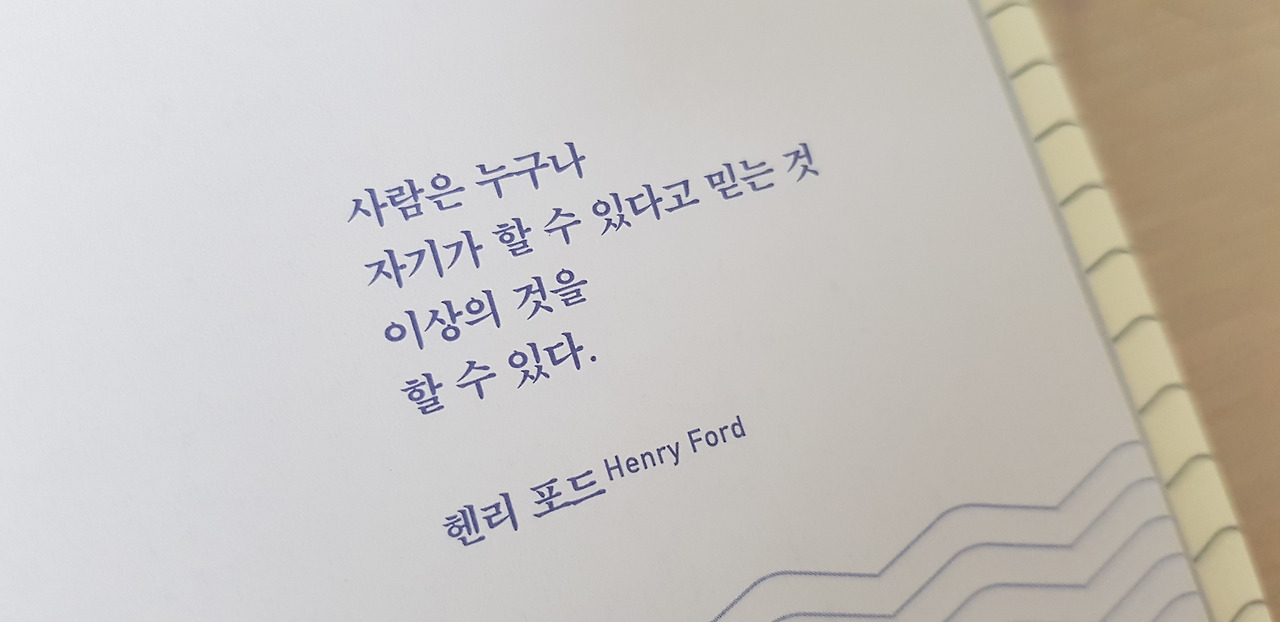 사람은 누구나
자기가 할 수 있다고 믿는 것
이상의 것을
할 수 있다.
헨리 포드 Henry Ford